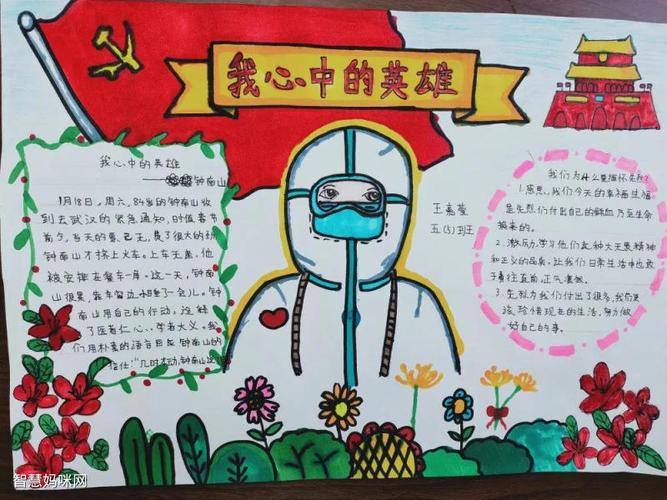 我心中的英雄
我心中的英雄
钟南山
1月18日,周六,84岁的钟南山收
到去武汉的紧急通知,时值春节
前夕,当天的
钟南山才挤上火车。上车无座,他
被安排在餐车一席。这一天,钟南
山很累,靠车窗边小睡了一会儿。钟
南山用自己的行动,诠释
了医者仁心、学者大义。我
们用朴素的语言目睹钟南山的
担任:"几时去动,钟南山
王嘉莹
五(5)班
我们为什么要缅怀先烈?
1.感恩,我们今天的幸福生活
是先烈们付出自己的鲜血乃至生命
换来的。
2.激励,学习他们这种大无畏精神
和正义的品质。让我们日常生活中也敢
于勇往直前,正气凛然。
3.先烈为我们付出了很多,我们更
该珍惜现在的生活,努力做
好自己的事。
智慧妈咪网